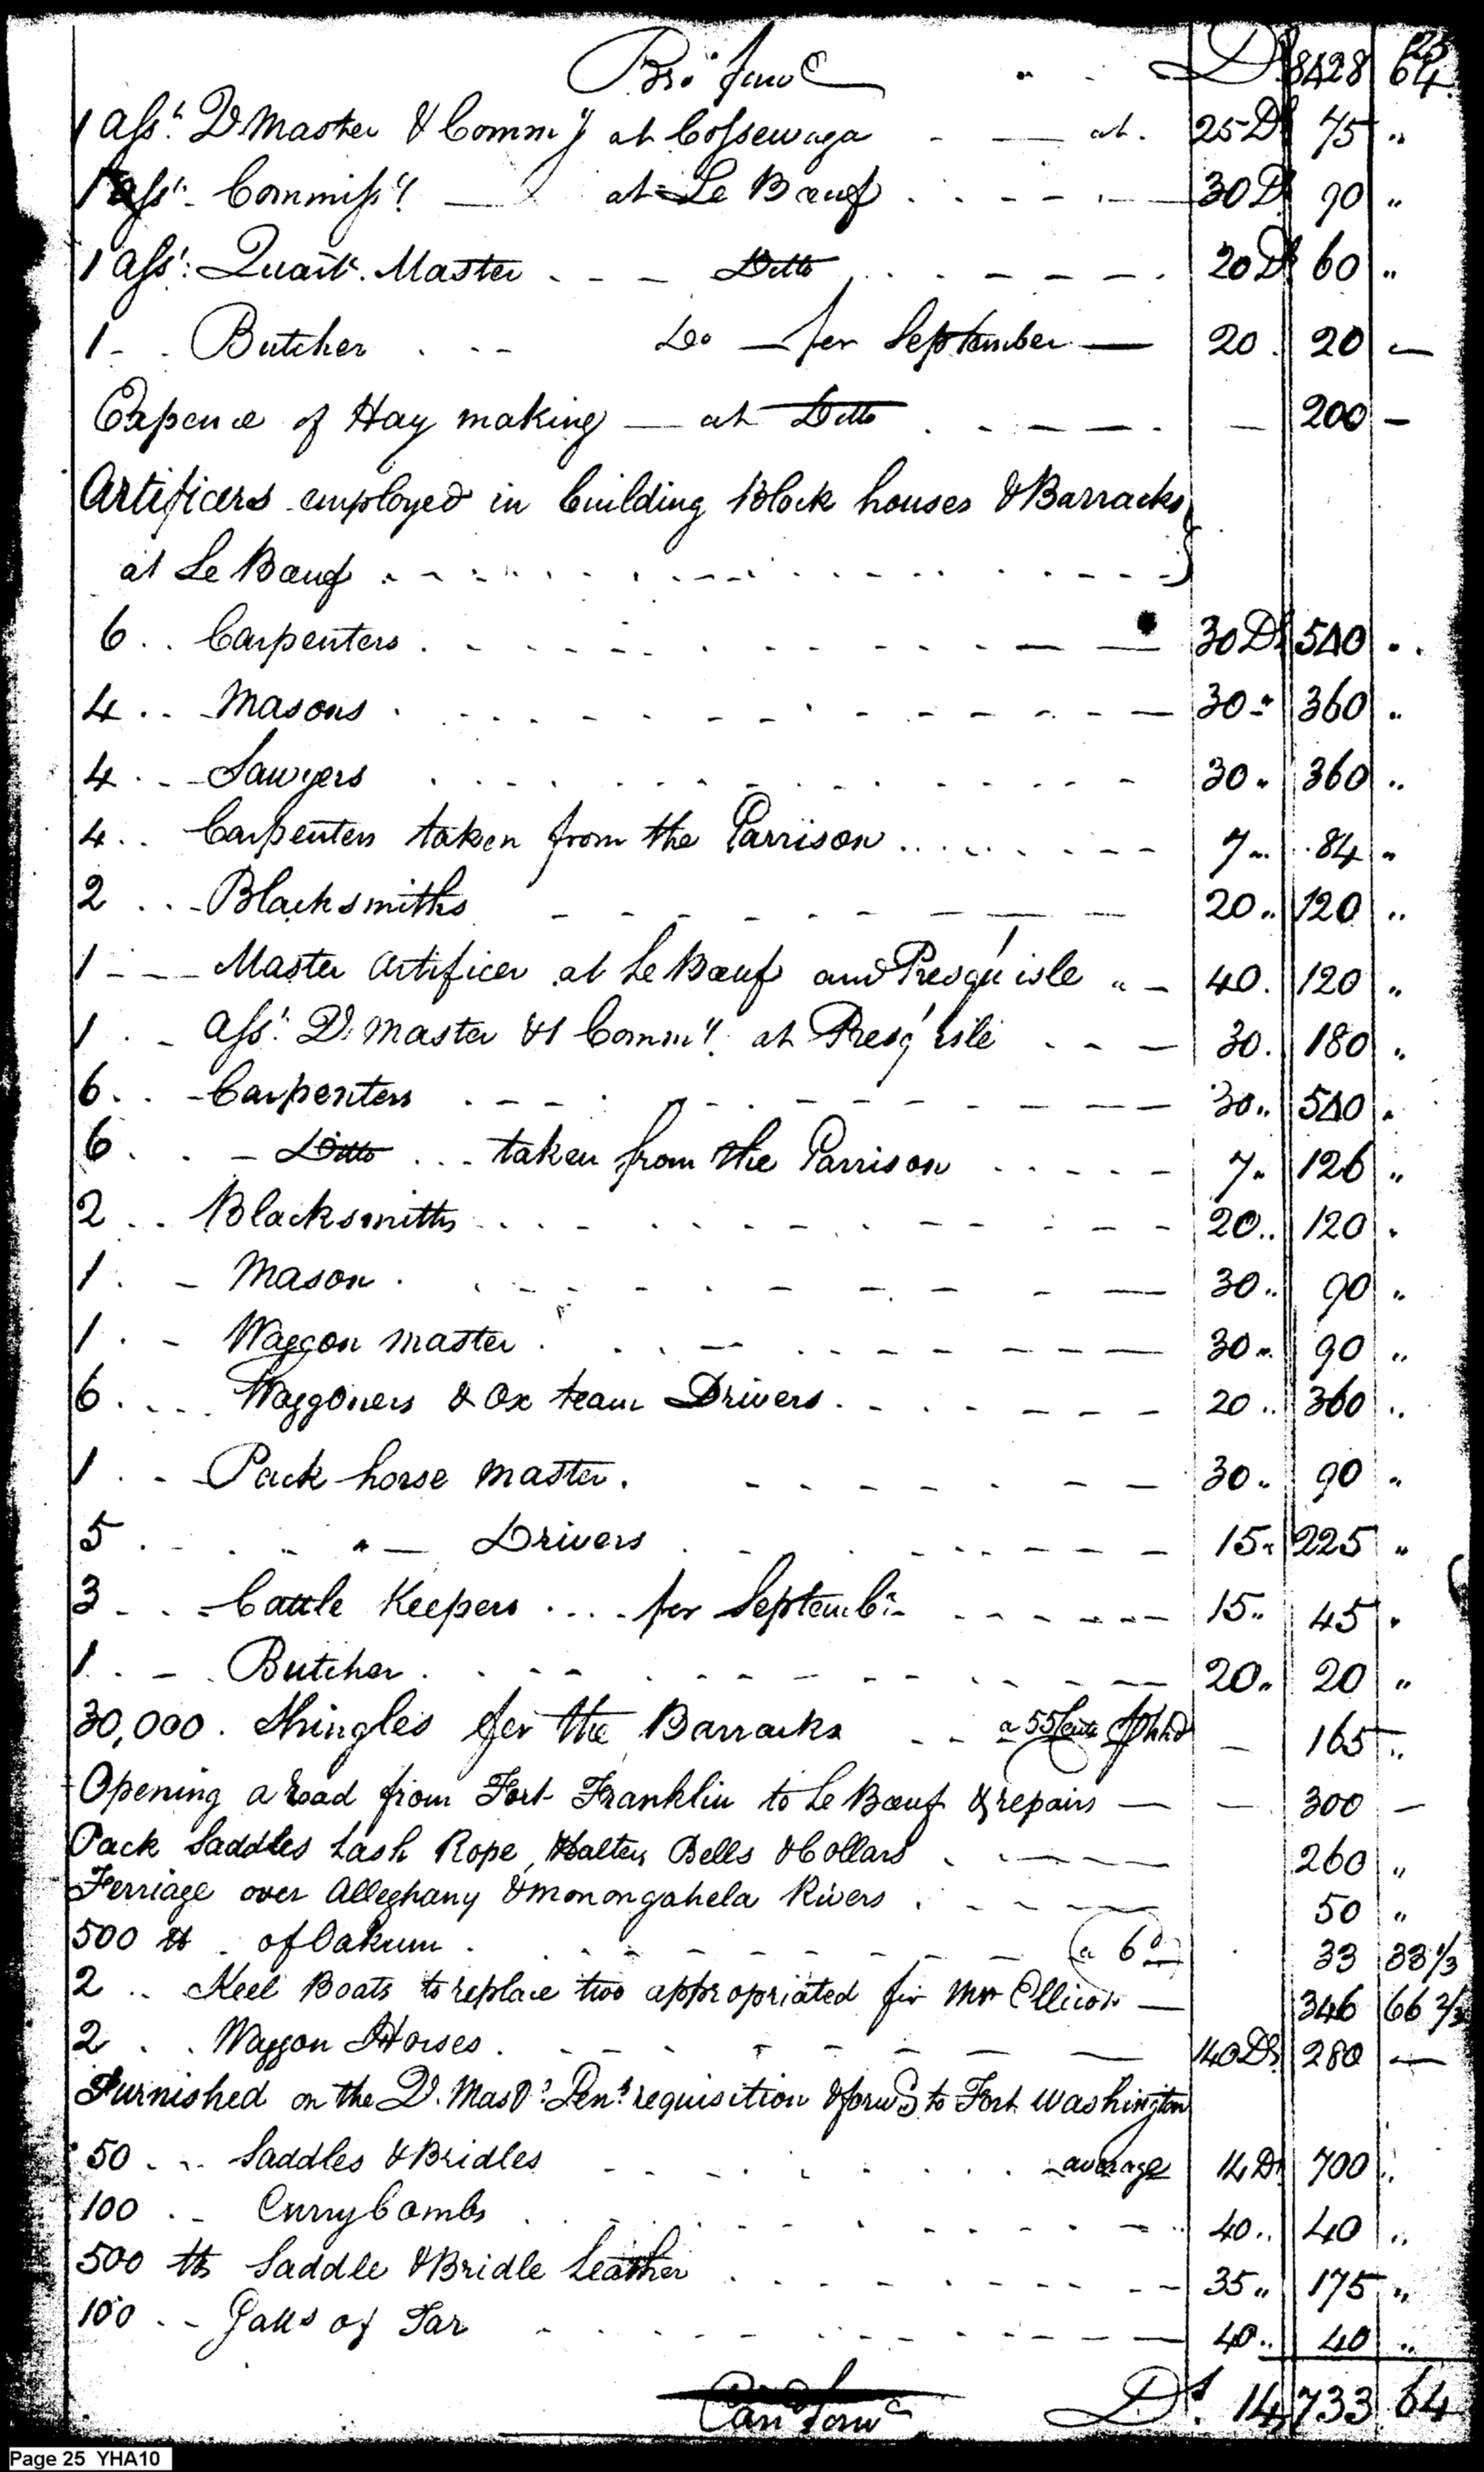 Bro.t forw.d - - Ds. 8428 64
1 Ass.t Q Master & Comm.y at Cossewaga - — at. 25 Ds 75 "
1 Ass.t Commiss.y — at Le Bœuf - - - - 30 Ds 90 "
1 Ass.t Quart.r Master - - - Ditto - - - - - 20 Ds 60 "
1 - - Butcher - - - Do — for September — 20. 20 —
Expence of Hay making — at Ditto - - - - - — 200 —
Artificers employed in building Block houses & Barracks
at Le Bœuf - - - - - - - - - - }
6 .. Carpenters - - - - - - - 30 Ds 540 ..
4 .. Masons - - - - - - - - 30 " 360 "
4 .. Sawyers - - - - - - - - 30 " 360 "
4 .. Carpenters taken from the Garrison - - - - 7 " 84 "
2 .. Blacksmiths - - - - - - - 20 " 120 "
1 - - Master Artificer at Le Bœuf and Presqu'isle " - 40. 120 "
1 . - Ass.t Q. Master & Comm.y at Presq'isle - - - 30. 180 "
6 .. Carpenters - - - - - - - 30 " 540 "
6 . - Ditto ... taken from the Garrison - - - - 7 " 126 "
2 .. Blacksmiths - - - - - - - 20 .. 120 "
1 . - Mason - - - - - - - - 30 .. 90 "
1 . - Waggon Master - - - - - - - 30 " 90 "
6 ... Waggoners & Ox team Drivers - - - - - 20 .. 360 "
1 . - Pack horse Master. - - - - - - 30 .. 90 "
5 . . . " — Drivers - - - - - - 15 " 225 "
3 - . - Cattle Keepers .... for Septemb.r - - - - 15 .. 45 "
1 . - Butcher - - - - - - - 20 .. 20 "
30,000. Shingles for the Barracks - - a 55 Cents — 165 "
Opening a road from Fort Franklin to Le Bœuf & repairs — — 300 —
Pack Saddles Lash Rope, Halters Bells & Collars - - - 260 "
Ferriage over Alleghany & Monongahela Rivers - - - 50 "
500 lb . of Oakum - - - - - - (a 6d) 33 33 1/3
2 .. Keel Boats to replace two appropriated for Mr Ellicott — 346 66 2/3
2 .. Waggon Horses - - - - - - 140 Ds. 280 —
Furnished on the Q. Mas.r Gen.s requisition & forw.d to Fort Washington
50 - .. Saddles & Bridles - - - - - average 14 Ds 700 ..
100 .. Currycombs - - - - - - - 40 .. 40 ..
500 lb Saddle & Bridle Leather - - - - - 35 " 175 "
100 .. Galls of Tar - - - - - - - 40 .. 40 ..
Car.d forw.d Ds. 14,733 64
Page 25 YHA10